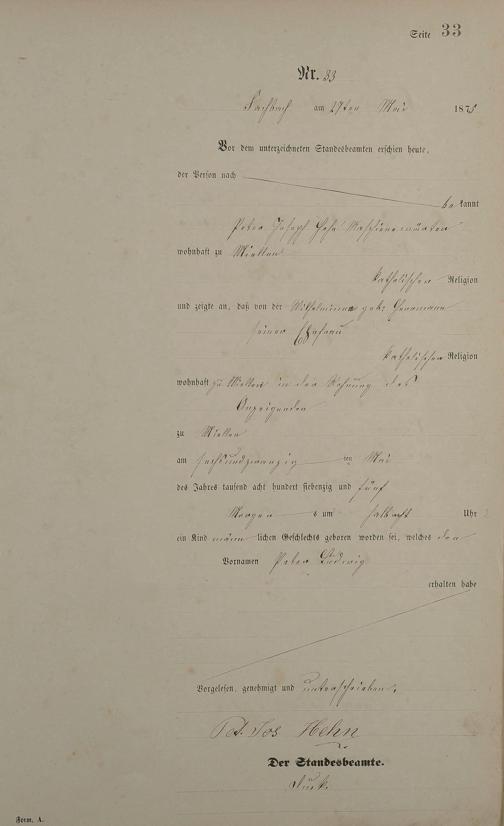 Seite 33
Nr. 33
Fachbach am 27ten Mai 1875
Vor dem unterzeichneten Standesbeamten erschien heute,
der Person nach
bekannt
Peter Joseph Hehn Maschinenwärter
wohnhaft zu Miellen
katholischer Religion
und zeigte an, daß von der Wilhelmine geb.
seiner Ehefrau
katholischer Religion
wohnhaft zu Miellen in der Wohnung des
Anzeigenden
zu Miellen
am sechsundzwanzig ten Mai
des Jahres tausend acht hundert siebenzig und fünf
Morgens um halb acht Uhr
ein Kind männlichen Geschlechts geboren worden sei, welches den
Vornamen Peter Ludwig
erhalten habe
Vorgelesen, genehmigt und unterschrieben.
Pet. Jos Hehn
Der Standesbeamte.
Form. A.